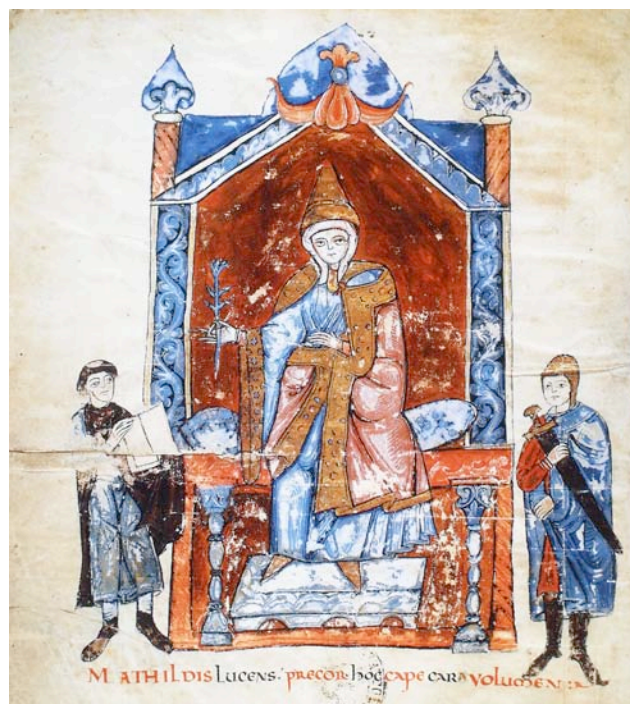 MATHILDIS LUCENS: PRECOR HOC CAPE CARA VOLUMEN